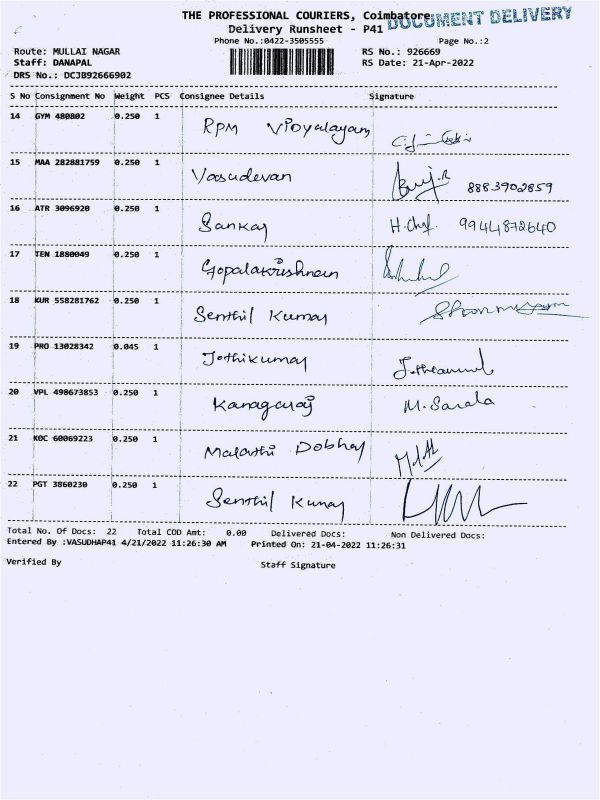 THE PROFESSIONAL COURIERS, Coimbatore
DOCUMENT DELIVERY
Delivery Runsheet - P41
Phone No.:0422-3505555 Page No.:2
Route: MULLAI NAGAR RS No.: 926669
Staff: DANAPAL RS Date: 21-Apr-2022
DRS No.: DCJB92666902
S No Consignment No Weight PCS Consignee Details Signature
14 GYM 480802 0.250 1 RPM Vidyalayam
15 MAA 282881759 0.250 1 Vasudevan 8883902859
16 ATR 3096920 0.250 1 Sankar 9944872640
17 TEN 1880049 0.250 1 Gopalakrishnan
18 KUR 558281762 0.250 1 Senthil Kumar
19 PRO 13028342 0.045 1 Jothikumar
20 VPL 498673853 0.250 1 Kanagaraj M. Sarala
21 KOC 60069223 0.250 1 Malathi Dobhay
22 PGT 3860230 0.250 1 Senthil Kumar
Total No. Of Docs: 22 Total COD Amt: 0.00 Delivered Docs: Non Delivered Docs:
Entered By :VASUDHAP41 4/21/2022 11:26:30 AM Printed On: 21-04-2022 11:26:31
Verified By Staff Signature